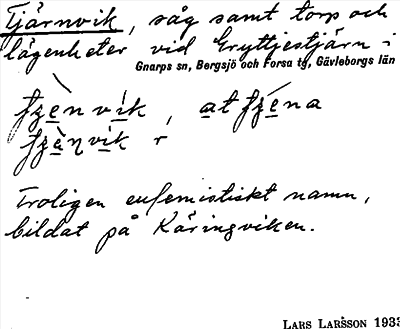 Tjärnvik, såg samt torp och
lägenheter vid Gryttjestjärn i
Gnarps sn, Bergsjö och Forsa tg, Gävleborgs län
Troligen eufemistiskt namn,
bildat på Käringviken.
LARS LARSSON 1933